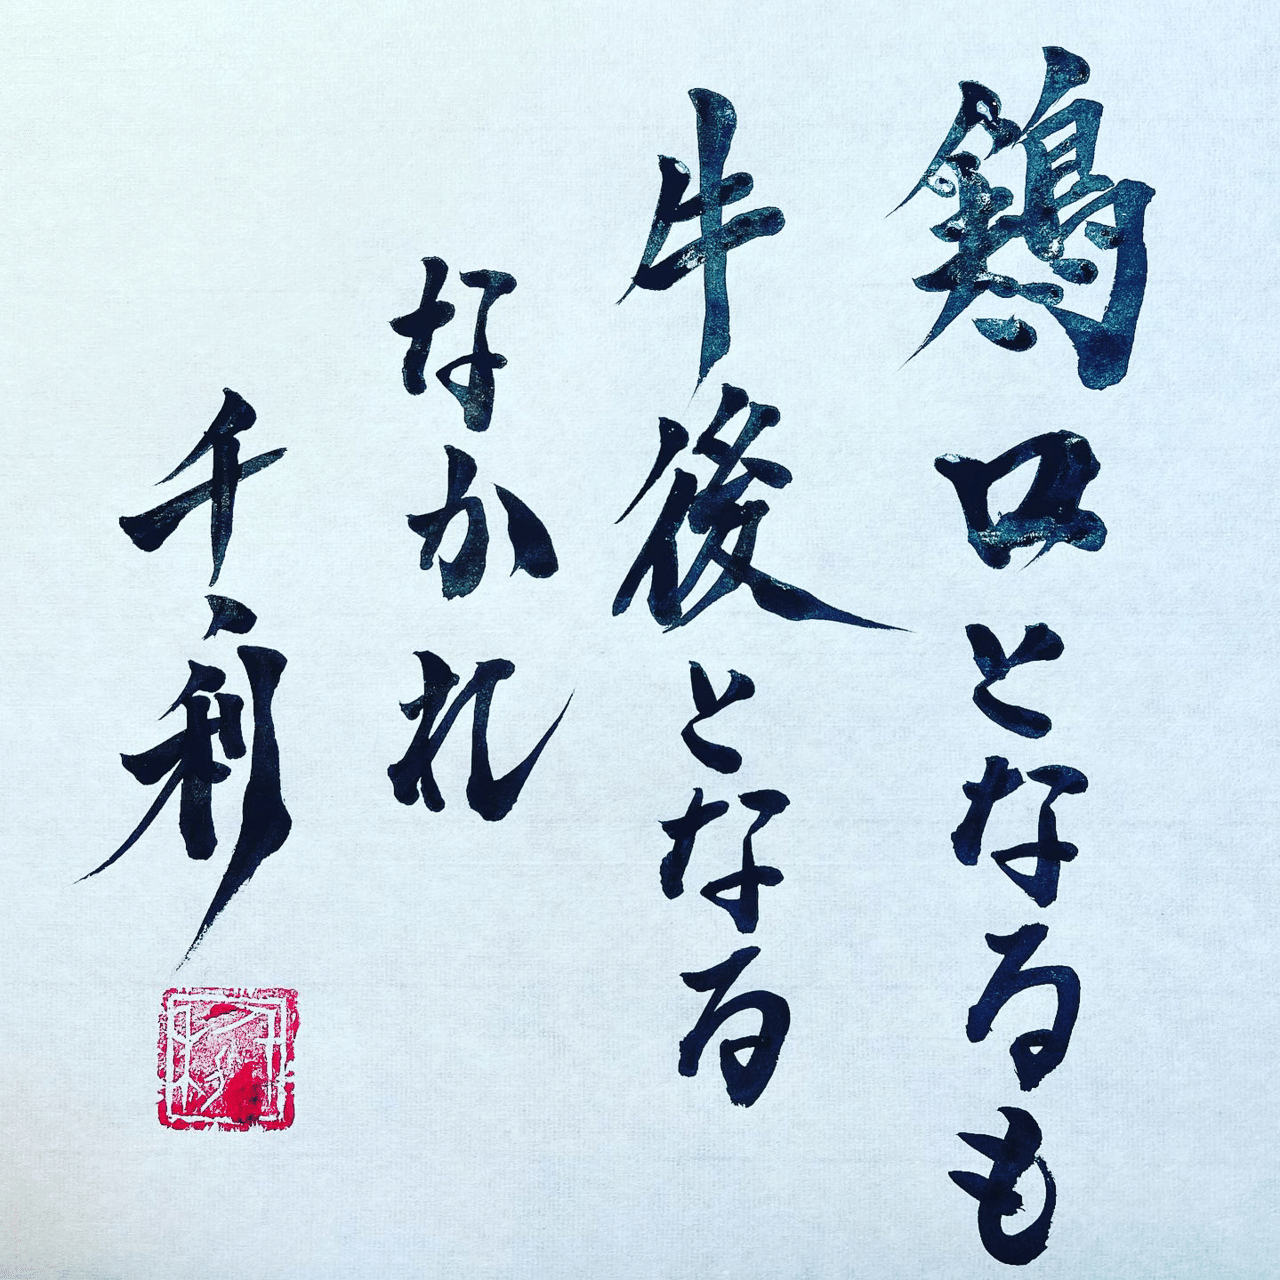 鶏口となるも
牛後となる
なかれ
千利